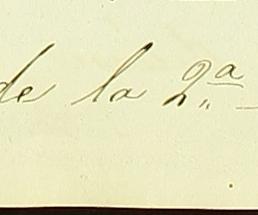 de la 2.ª